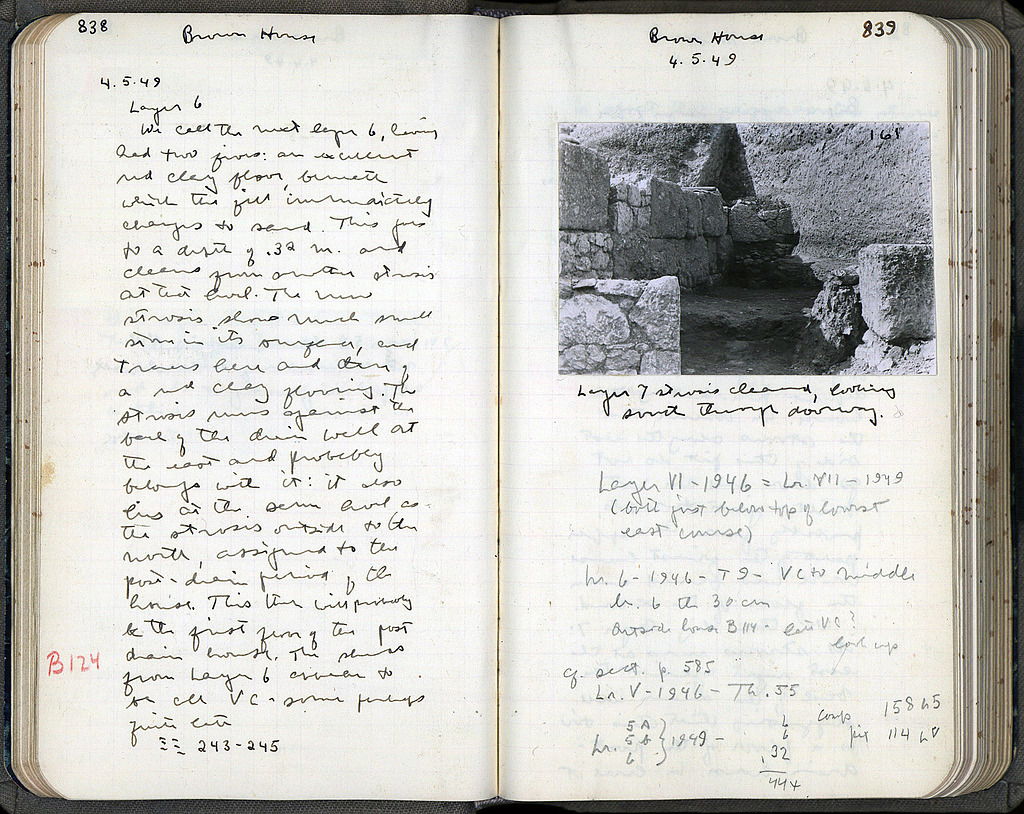 838
Brown House
4.5.49
Layer 6
We call the next layer 6, having
had two floors: an excellent
red clay floor, beneath
which the fill immediately
changes to sand. This goes
to a depth of .32 m. and
cleans from another strosis
at that level. The new
strosis shows much small
stone in its surface, and
traces here and there of
a red clay flooring. The
strosis runs against the
back of the drain well at
the east and probably
belongs with it: it also
lies at the same level as
the strosis outside to the
north, assigned to the
post-drain period of the
house. This then will probably
be the first floor of the post
drain house. The sherds
from Layer 6 appear to
be all VC - some perhaps
quite late
B124
243-245
Brown House
839
4.5.49
161
Layer 7 strosis cleared, looking
south through doorway.
Layer VI - 1946 = Lr. VII - 1949
(both just below top of lowest
east course)
Lr. 6 - 1946 - T9 - VC to middle
Lr. 6 th 30 cm
Outside house B114 - late VC?
look up
cf. sect. p. 585
Lr. V - 1946 - Th. 55
5A
Lr. 5B } 1949 -
6
6
6
.32
44+
158
114